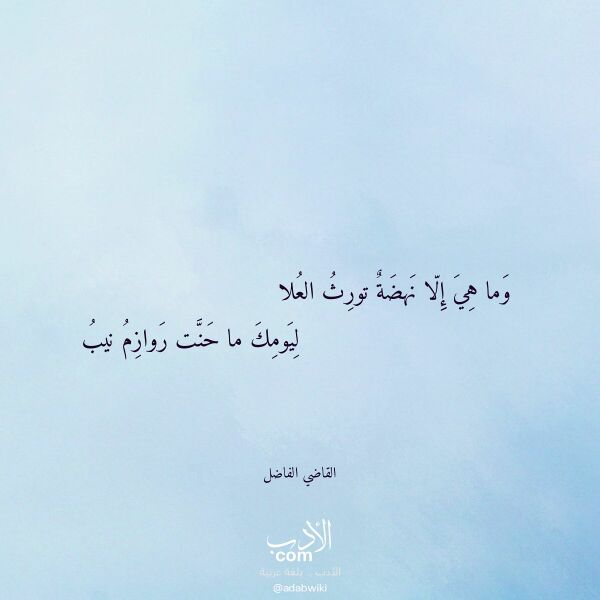 وَما هِيَ إِلّا نَهضَةٌ تورِثُ العُلا
لِيَومِكَ ما حَنَّت رَوازِمُ نيبُ
القاضي الفاضل
الأدب
com
الأدب .. بلغة عربية
@adabwiki